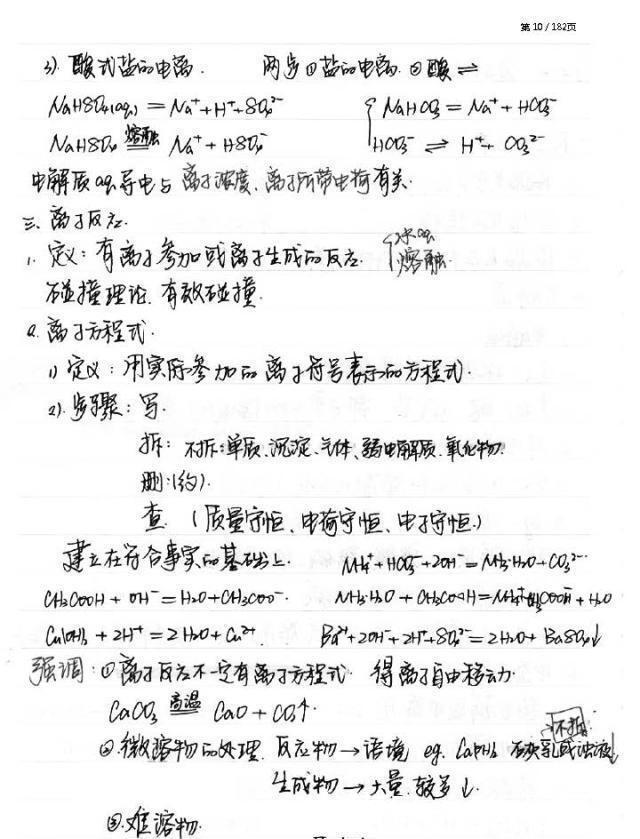 第 10 / 182页
3). 酸式盐的电离. 两步①盐的电离. ②酸 ⇌
NaHSO₄(aq) = Na⁺+H⁺+SO₄²⁻ { NaHCO₃ = Na⁺ + HCO₃⁻
NaHSO₄ 熔融 Na⁺ + HSO₄⁻ HCO₃⁻ ⇌ H⁺+ CO₃²⁻
电解质aq导电与 离子浓度、离子所带电荷有关.
三. 离子反应.
1. 定义: 有离子参加或离子生成的反应. { 水aq 熔融
碰撞理论. 有效碰撞.
2. 离子方程式.
1) 定义: 用实际参加的离子符号表示的方程式.
2). 步骤: 写.
拆: 不拆:单质、沉淀、气体、弱电解质、氧化物.
删:(约).
查. (质量守恒、电荷守恒、电子守恒.)
建立在符合事实的基础上. NH₄⁺+HCO₃⁻+2OH⁻=NH₃·H₂O+CO₃²⁻
CH₃COOH + OH⁻=H₂O+CH₃COO⁻. NH₃·H₂O + CH₃COOH=NH₄⁺+CH₃COO⁻+H₂O
Ca(OH)₂ + 2H⁺=2H₂O+Ca²⁺. Ba²⁺+2OH⁻+2H⁺+SO₄²⁻=2H₂O+ BaSO₄↓
强调: ①离子反应不一定有离子方程式. 得离子自由移动.
CaCO₃ 高温 CaO + CO₂↑.
②.微溶物的处理. 反应物→语境 eg. Ca(OH)₂ 石灰乳或浊液 不拆.
生成物→大量.较多↓.
③.难溶物.